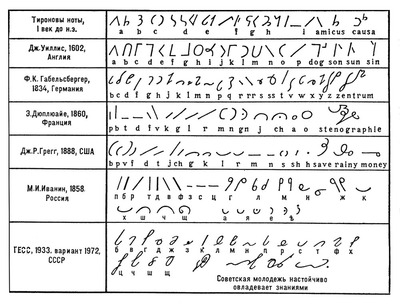 Тироновы ноты,
I век до н.э.
a b c d e f g h i l amicus causa
Дж.Уиллис, 1602,
Англия
a b c d e f g h i j k l m n o p dog son sun sin
Ф.К. Габельсбергер,
1834, Германия
b c d f g h j k l m n p q r r r s s s t v w x y z zentrum
Э.Дюплюайе, 1860,
Франция
p b t d f v k g l r m n g n j ch a o stenographie
Дж.Р.Грегг, 1888, США
b p v f d t j ch g k l r m n s s h h save rainy money
М.И.Иванин, 1858
Россия
п б р т д в ф з с г л м н ж к
х ш ч щ а у я е ѣ
ГЕСС, 1933. вариант 1972,
СССР
б в г д ж з к л м н п р с т ф х
ц ч ш щ
Советская молодежь настойчиво
овладевает знаниями